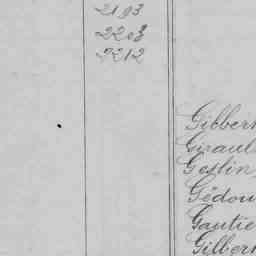 2193
2203
2212
Gibber
Giraul
Geslin
Gédou
Gautie
Gilber